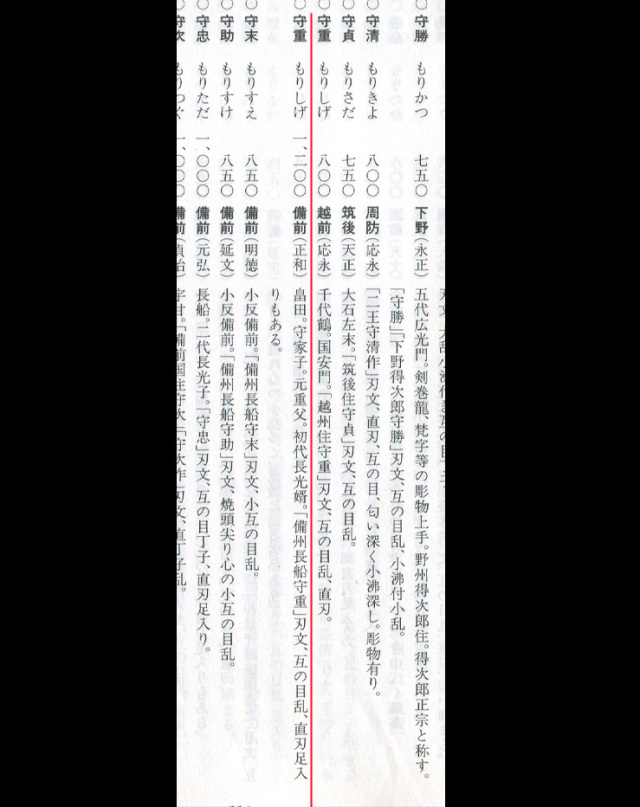 ○守勝 もりかつ 七五〇 下野(永正) 五代広光門。剣巻龍、梵字等の彫物上手。野州得次郎住。得次郎正宗と称す。
「守勝」「下野得次郎守勝」刃文、互の目乱、小沸付小乱。
○守清 もりきよ 八〇〇 周防(応永) 「二王守清作」刃文、直刃、互の目、匂い深く小沸深し。彫物有り。
○守貞 もりさだ 七五〇 筑後(天正) 大石左末。「筑後住守貞」刃文、互の目乱。
○守重 もりしげ 八〇〇 越前(応永) 千代鶴。国安門。「越州住守重」刃文、互の目乱、直刃。
○守重 もりしげ 一、二〇〇 備前(正和) 畠田。守家子。元重父。初代長光婿。「備州長船守重」刃文、互の目乱、直刃足入
りもある。
○守末 もりすえ 八五〇 備前(明徳) 小反備前。「備州長船守末」刃文、小互の目乱。
○守助 もりすけ 八五〇 備前(延文) 小反備前。「備州長船守助」刃文、焼頭尖り心の小互の目乱。
○守忠 もりただ 一、〇〇〇 備前(元弘) 長船。二代長光子。「守忠」刃文、互の目丁子、直刃足入り。
○守次 もりつぐ 一、〇〇〇 備前(貞治) 宇甘。「備前国住守次」「守次作」刃文、直丁子乱。